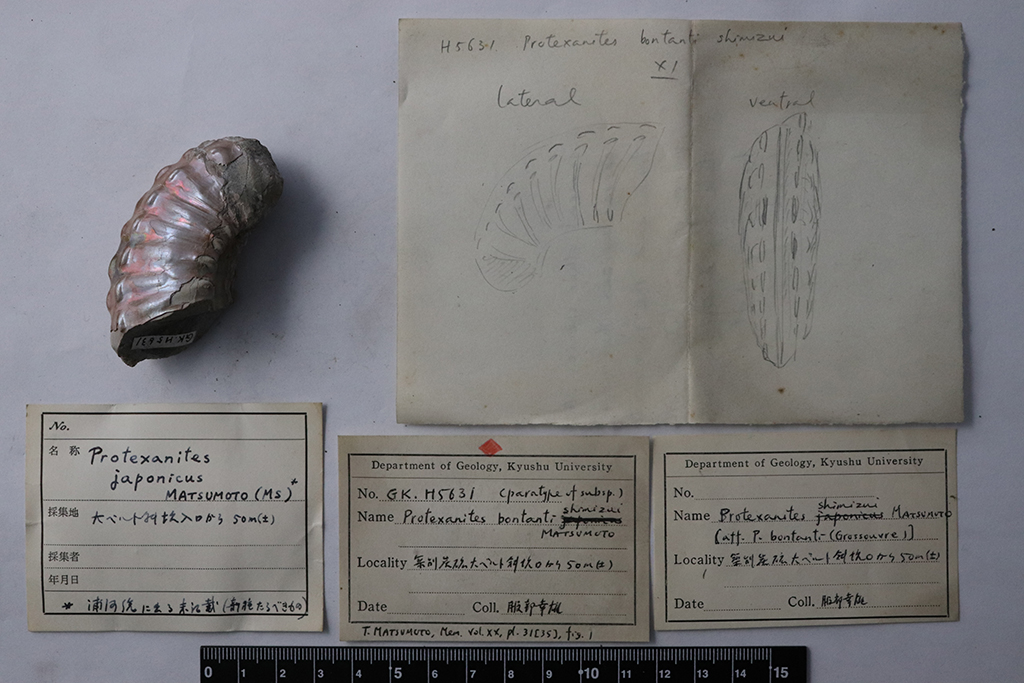 H5631. Protexanites bontanti shimizui
×1
lateral
ventral
GK.H5631
No.
名称 Protexanites
japonicus
MATSUMOTO (MS)*
採集地 大ベルト斜坑入口から 50m(±)
採集者
年月日
* 浦河
Department of Geology, Kyushu University
No. GK. H5631 (paratype of subsp.)
Name Protexanites bontanti japonicus shimizui
MATSUMOTO
Locality 大ベルト斜坑口から 50m(±)
Date Coll. 服部幸雄
T. MATSUMOTO, Mem. vol. XX, pl. 31[35], fig. 1
Department of Geology, Kyushu University
No.
Name Protexanites japonicus shimizui MATSUMOTO
[aff. P. bontanti (Grossouvre)]
Locality 大ベルト斜坑口から 50m(±)
Date Coll. 服部幸雄
0 1 2 3 4 5 6 7 8 9 10 11 12 13 14 15